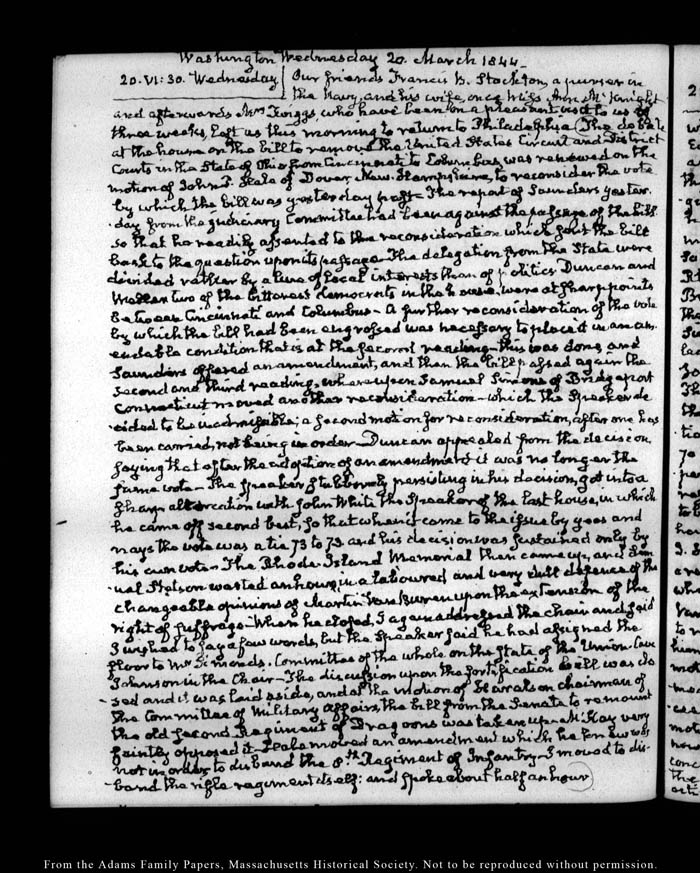 Washington Wednesday 20. March 1844.
20. VI:30. Wednesday Our friends Francis B. Stockton, a purser in
the Navy, and his wife, once Miss Ann McKnight
and afterwards Mrs Twiggs, who have been on a pleasant visit to us of
three weeks, left us this morning to return to Philadelphia. The debate
at the house on the bill to remove the United States Circuit and District
Courts in the State of Ohio from Cincinnati to Columbus, was renewed on the
motion of John P. Hale of Dover, New-Hampshire, to reconsider the vote
by which the bill was yesterday past. The report of Saunders yester-
day from the judiciary Committee had been against the passage of the bill
so that he readily assented to the reconsideration which past the bill
back to the question upon its passage. The delegation from the State were
divided rather by a line of local interests than of politics. Duncan and
Weller two of the bitterest democrats in the house, were at sharp points
between Cincinnati and Columbus. A further reconsideration of the vote
by which the bill had been engrossed was necessary to place it in an am-
endable condition that is at the second reading. this was done, and
Saunders offered an amendment, and then the bill passed again the
second and third reading, whereupon Samuel Simons of Bridgeport
Connecticut moved another reconsideration. which the Speaker de-
cided to be inadmissible; a second motion for reconsideration, after one has
been carried, not being in order. Duncan appealed from the decision,
saying that after the adoption of an amendment it was no longer the
same vote. The Speaker stubbornly persisting in his decision, got into a
sharp altercation with John White the Speaker of the last house, in which
he came off second best, so that when it came to the issue by yeas and
nays the vote was a tie 73 to 73 and his decision was sustained only by
his own vote. The Rhode Island Memorial then came up, and Lem-
uel Stetson wasted an hour, in a laboured and very dull defence of the
changeable opinions of Martin Van Buren upon the extension of the
right of suffrage. When he closed, I again addressed the chair and said
I wished to say a few words, but the Speaker said he had assigned the
floor to Mr Simons. Committee of the whole on the State of the Union. Cave
Johnson in the Chair. The discussion upon the fortification bill was clo-
sed and it was laid aside, and at the motion of Haralson chairman of
the Committee of Military affairs, the bill from the Senate to remount
the old second Regiment of Dragoons was taken up. McKay very
faintly opposed it. Hale moved an amendment which he knew was
not in order, to disband the 8th Regiment of Infantry. I moved to dis-
band the rifle regiment itself: and spoke about half an hour
From the Adams Family Papers, Massachusetts Historical Society. Not to be reproduced without permission.